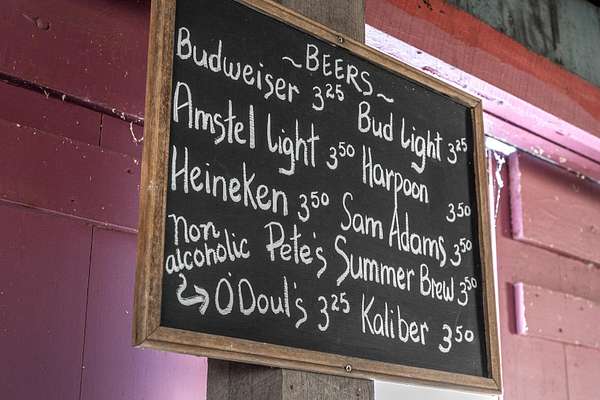 ~BEERS~
Budweiser 3 25
Bud Light 3 25
Amstel Light 3 50
Harpoon 3 50
Heineken 3 50
Sam Adams 3 50
Pete's Summer Brew 3 50
non
alcoholic
→ O'Doul's 3 25
Kaliber 3 50